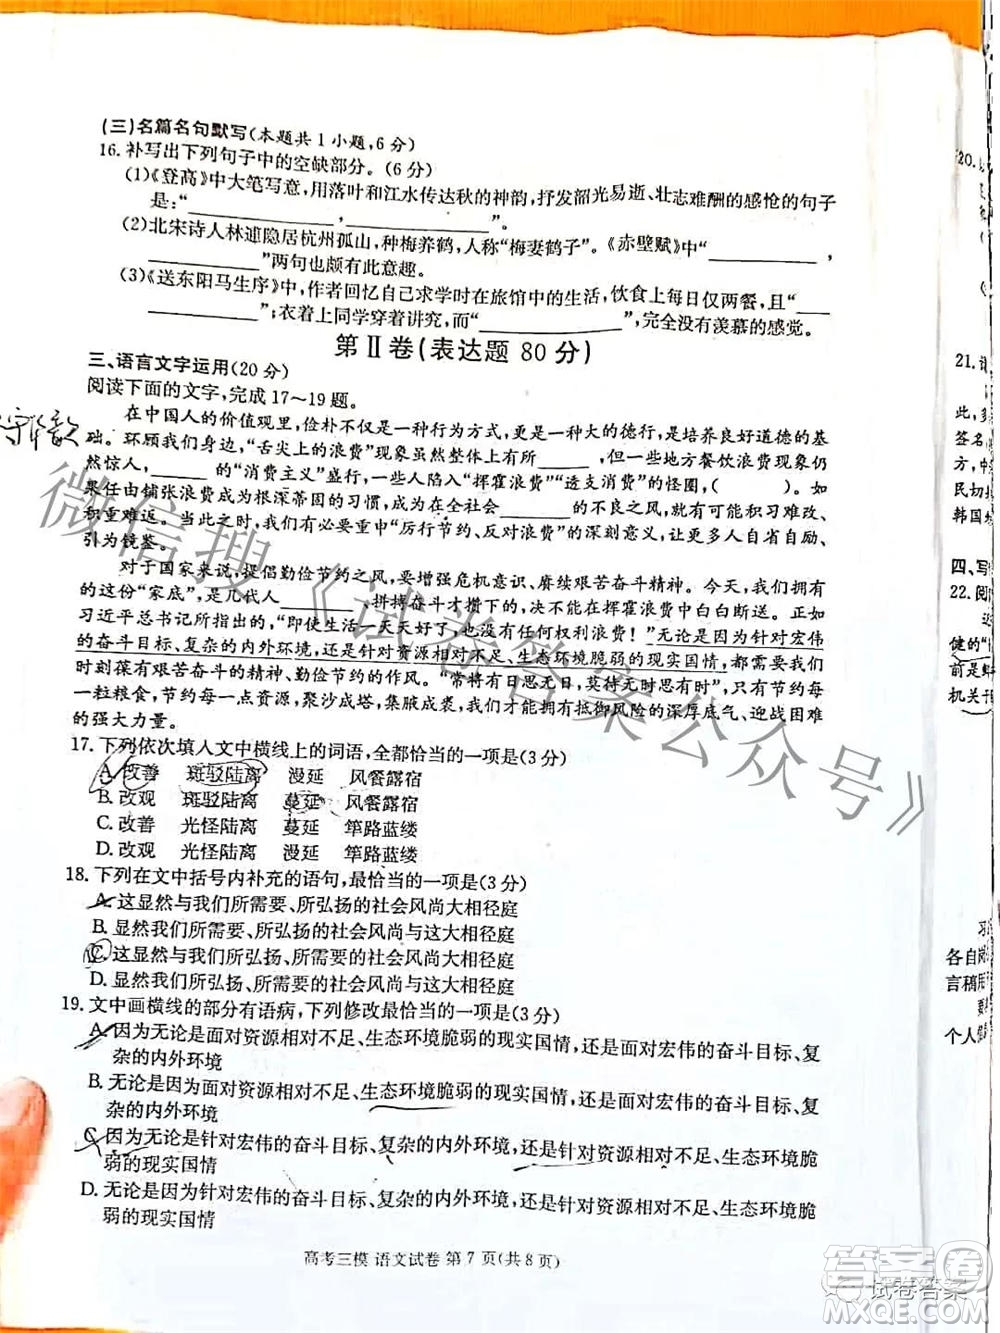 (三)名篇名句默写(本题共1小题,6分)
16.补写出下列句子中的空缺部分。(6分)
(1)《登高》中大笔写意,用落叶和江水传达秋的神韵,抒发韶光易逝、壮志难酬的感怆的句子
是:“__________,__________”。
(2)北宋诗人林逋隐居杭州孤山,种梅养鹤,人称“梅妻鹤子”。《赤壁赋》中“__________,
__________”两句也颇有此意趣。
(3)《送东阳马生序》中,作者回忆自己求学时在旅馆中的生活,饮食上每日仅两餐,且“____
__________”;衣着上同学穿着讲究,而“__________”,完全没有羡慕的感觉。
第Ⅱ卷(表达题 80分)
三、语言文字运用(20分)
阅读下面的文字,完成17~19题。
在中国人的价值观里,俭朴不仅是一种行为方式,更是一种大的德行,是培养良好道德的基
础。环顾我们身边,“舌尖上的浪费”现象虽然整体上有所______,但一些地方餐饮浪费现象仍
然惊人,______的“消费主义”盛行,一些人陷入“挥霍浪费”“透支消费”的怪圈,(      )。如
果任由铺张浪费成为根深蒂固的习惯,成为在全社会______的不良之风,就可能积习难改、
积重难返。当此之时,我们有必要重申“厉行节约、反对浪费”的深刻意义,让更多人自省自励、
引为镜鉴。
对于国家来说,提倡勤俭节约之风,要增强危机意识、赓续艰苦奋斗精神。今天,我们拥有
的这份“家底”,是几代人______、拼搏奋斗才攒下的,不能在挥霍浪费中白白断送。正如
习近平总书记所指出的:“即使生活一天天好了,也没有任何权利浪费!”无论是因为针对宏伟
的奋斗目标、复杂的内外环境,还是针对资源相对不足、生态环境脆弱的现实国情,我们都要
时刻葆有艰苦奋斗的精神、勤俭节约的作风。“常将有日思无日,莫待无时思有时”,只有珍惜每
一粒粮食,节约每一份资源,聚沙成塔、集腋成裘,才能拥有抵御风险的深厚底气、迎战困难
的强大力量。
17.下列依次填入文中横线上的词语,全都恰当的一项是(3分)
A.改善 斑驳陆离 漫延 风餐露宿
B.改观 斑驳陆离 蔓延 风餐露宿
C.改善 光怪陆离 蔓延 筚路蓝缕
D.改观 光怪陆离 漫延 筚路蓝缕
18.下列在文中括号内补充的语句,最恰当的一项是(3分)
A.这显然与我们所需要、所弘扬的社会风尚大相径庭
B.显然我们所需要、所弘扬的社会风尚与这大相径庭
C.这显然与我们所弘扬、所需要的社会风尚大相径庭
D.显然我们所弘扬、所需要的社会风尚与这大相径庭
19.文中画横线的部分有语病,下列修改最恰当的一项是(3分)
A.因为无论是面对资源相对不足、生态环境脆弱的现实国情,还是面对宏伟的奋斗目标、复
杂的内外环境
B.无论是因为面对资源相对不足、生态环境脆弱的现实国情,还是面对宏伟的奋斗目标、复
杂的内外环境
C.因为无论是针对宏伟的奋斗目标、复杂的内外环境,还是针对资源相对不足、生态环境脆
弱的现实国情
D.无论是因为针对宏伟的奋斗目标、复杂的内外环境,还是针对资源相对不足、生态环境脆
弱的现实国情
高考三模 语文试卷 第7页(共8页)
微信搜《试卷答案公众号》
20.
21.
此,
签名
方,
民切
韩国
四、写
22.阅
健的“
前是
机关
各自
言稿
个人
试卷答案
答案圈
MXQE.COM